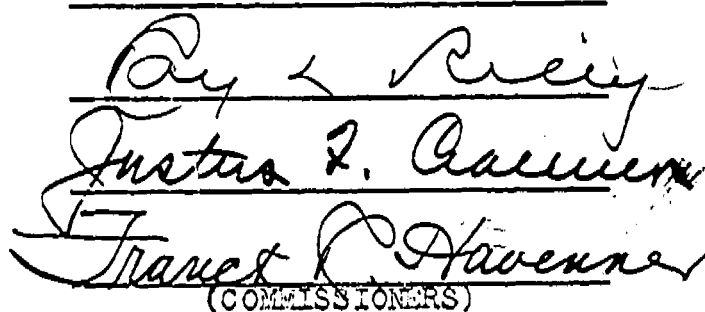 Ray L Riley
Justus F. Craemer
Franck R. Havenner
(COMMISSIONERS)